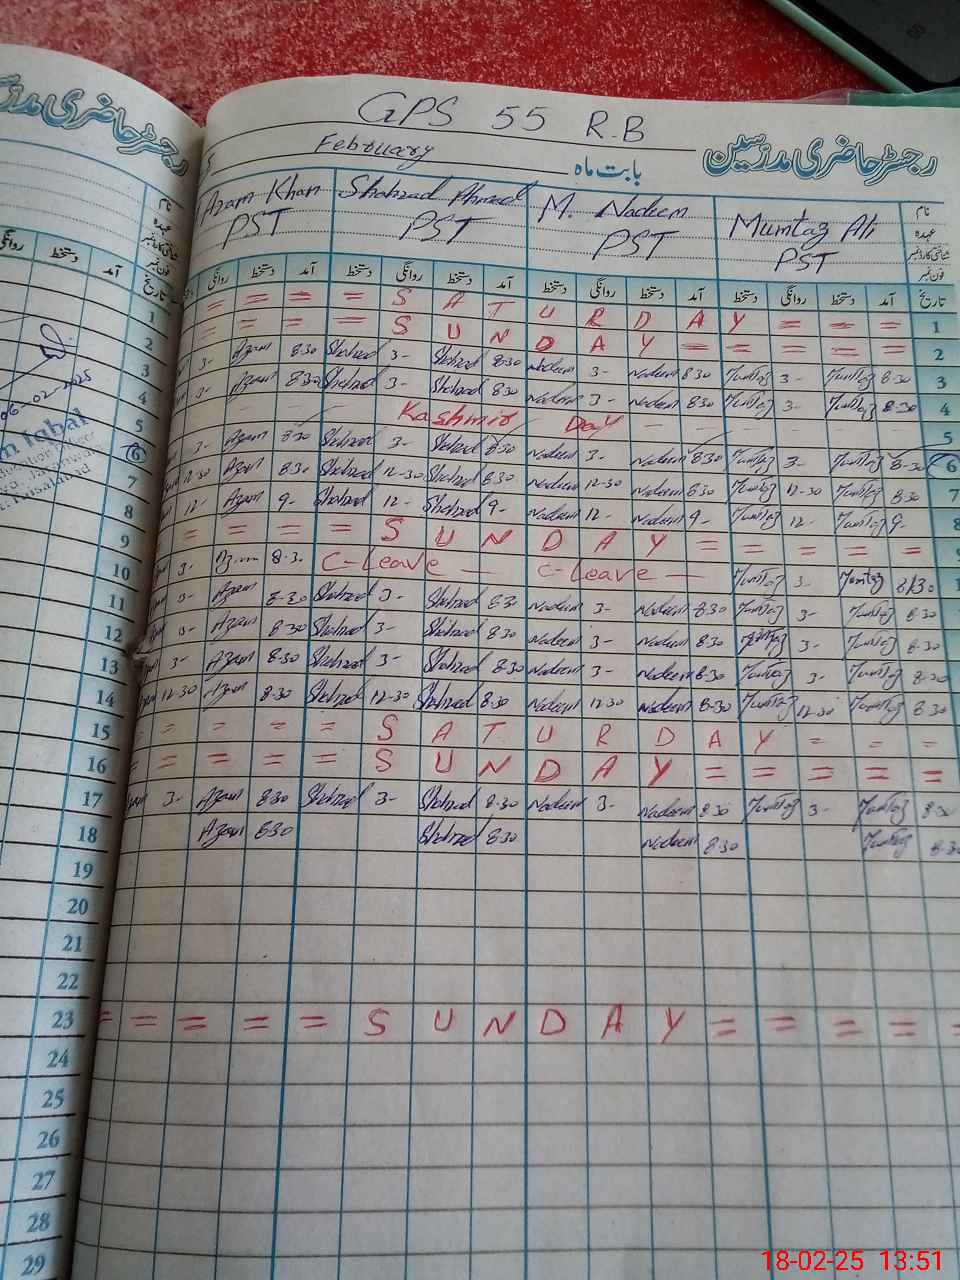 GPS 55 R.B
رجسٹر حاضری مدرسین
رجسٹر حاضری
February بابت ماہ
Azam Khan Shahzad Ahmed M. Nadeem Mumtaz Ali نام
PST PST PST PST عہدہ
شناختی کارڈ نمبر
فون نمبر
دستخط آمد دستخط روانگی دستخط آمد دستخط روانگی دستخط آمد دستخط روانگی دستخط آمد تاریخ
1 = = = = S A T U R D A Y = = = 1
2 = = = = S U N D A Y = = = = = = 2
3 3- Azam 8-30 Shahzad 3- Shahzad 8-30 Nadeem 3- Nadeem 8-30 Mumtaz 3- Mumtaz 8-30 3
4 3- Azam 8-30 Shahzad 3- Shahzad 8-30 Nadeem 3- Nadeem 8-30 Mumtaz 3- Mumtaz 8-30 4
5 Kashmir Day 5
6 3- Azam 8-30 Shahzad 3- Shahzad 8-30 Nadeem 3- Nadeem 8-30 Mumtaz 3- Mumtaz 8-30 6
7 12-30 Azam 8-30 Shahzad 12-30 Shahzad 8-30 Nadeem 12-30 Nadeem 8-30 Mumtaz 12-30 Mumtaz 8-30 7
8 12- Azam 9- Shahzad 12- Shahzad 9- Nadeem 12- Nadeem 9- Mumtaz 12- Mumtaz 9- 8
9 = = = = S U N D A Y = = = = =
10 3- Azam 8-30 C-Leave — C-Leave — Mumtaz 3- Mumtaz 8-30
11 3- Azam 8-30 Shahzad 3- Shahzad 8-30 Nadeem 3- Nadeem 8-30 Mumtaz 3- Mumtaz 8-30
12 3- Azam 8-30 Shahzad 3- Shahzad 8-30 Nadeem 3- Nadeem 8-30 Mumtaz 3- Mumtaz 8-30
13 3- Azam 8-30 Shahzad 3- Shahzad 8-30 Nadeem 3- Nadeem 8-30 Mumtaz 3- Mumtaz 8-30
14 12-30 Azam 8-30 Shahzad 12-30 Shahzad 8-30 Nadeem 12-30 Nadeem 8-30 Mumtaz 12-30 Mumtaz 8-30
15 = = = = S A T U R D A Y = = =
16 = = = = = S U N D A Y = = = = =
17 3- Azam 8-30 Shahzad 3- Shahzad 8-30 Nadeem 3- Nadeem 8-30 Mumtaz 3- Mumtaz 8-30
18 Azam 8-30 Shahzad 8-30 Nadeem 8-30 Mumtaz 8-30
19
20
21
22
23 = = = = = S U N D A Y = = = = =
24
25
26
27
28
29
06-02-2025
Iqbal
Faisalabad
18-02-25 13:51